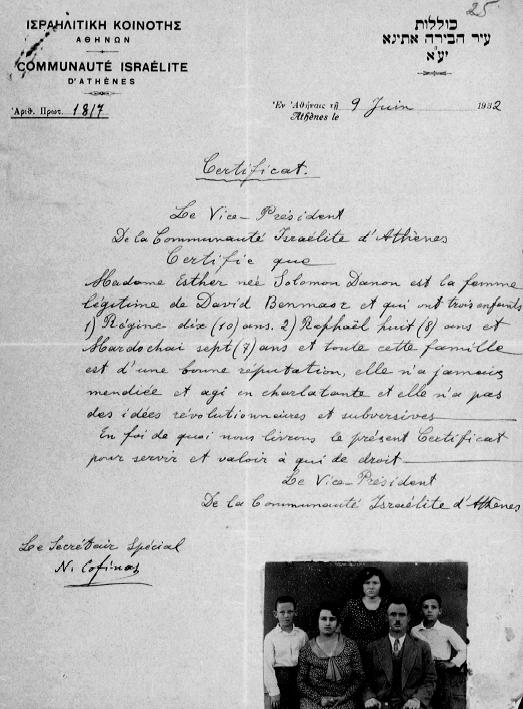 25
ΙΣΡΑΗΛΙΤΙΚΗ ΚΟΙΝΟΤΗΣ
ΑΘΗΝΩΝ
COMMUNAUTÉ ISRAÉLITE
D'ATHÈNES
Ἀριθ. Πρωτ. 1817
כוללות
עיר הבירה אתינא
יע״א
Ἐν Ἀθήναις τῇ
Athènes le 9 Juin 1932
Certificat.
Le Vice-Président
De la Communauté Israélite d'Athènes
Certifie que
Madame Esther née Solomon Danon est la femme
légitime de David Benmaor et qui ont trois enfants
1) Régine dix (10) ans. 2) Raphaël huit (8) ans et
Mardochai sept (7) ans et toute cette famille
est d'une bonne réputation, elle n'a jamais
mendiée et agi en charlatante et elle n'a pas
des idées révolutionnaires et subversives
En foi de quoi nous livrons le présent Certificat
pour servir et valoir à qui de droit
Le Vice-Président
De la Communauté Israélite d'Athènes
Le Secrétair Spécial
N. Cofinas